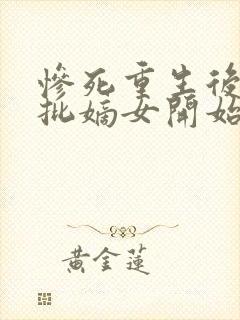 慘死重生後
批嫡女開始
黃金蓮